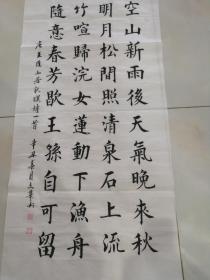 空山新雨後天氣晚來秋
明月松間照清泉石上流
竹喧歸浣女蓮動下漁舟
隨意春芳歇王孫自可留
唐王維山居秋暝詩一首 辛丑